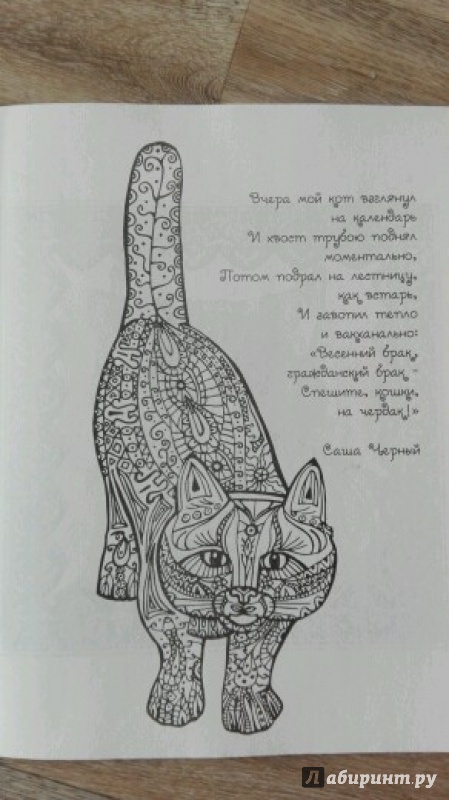 Вчера мой кот взглянул
на календарь
И хвост трубою поднял
моментально,
Потом подрал на лестницу,
как встарь,
И завопил тепло
и вакханально:
«Весенний брак,
гражданский брак -
Спешите, кошки,
на чердак!»
Саша Черный
Лабиринт.ру